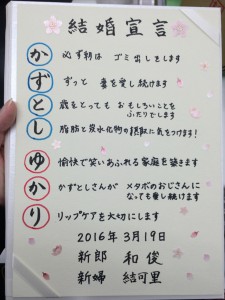 結婚宣言
か 必ず朝は ゴミ出しをします
ず ずっと 妻を愛し続けます
と 歳をとっても おもしろいことを
ふたりでします
し 脂肪と炭水化物の摂取に気をつけます!
ゆ 愉快で笑いあふれる家庭を築きます
か かずとしさんが メタボのおじさんに
なっても愛し続けます
り リップケアを大切にします
2016年3月19日
新郎 和俊
新婦 結可里